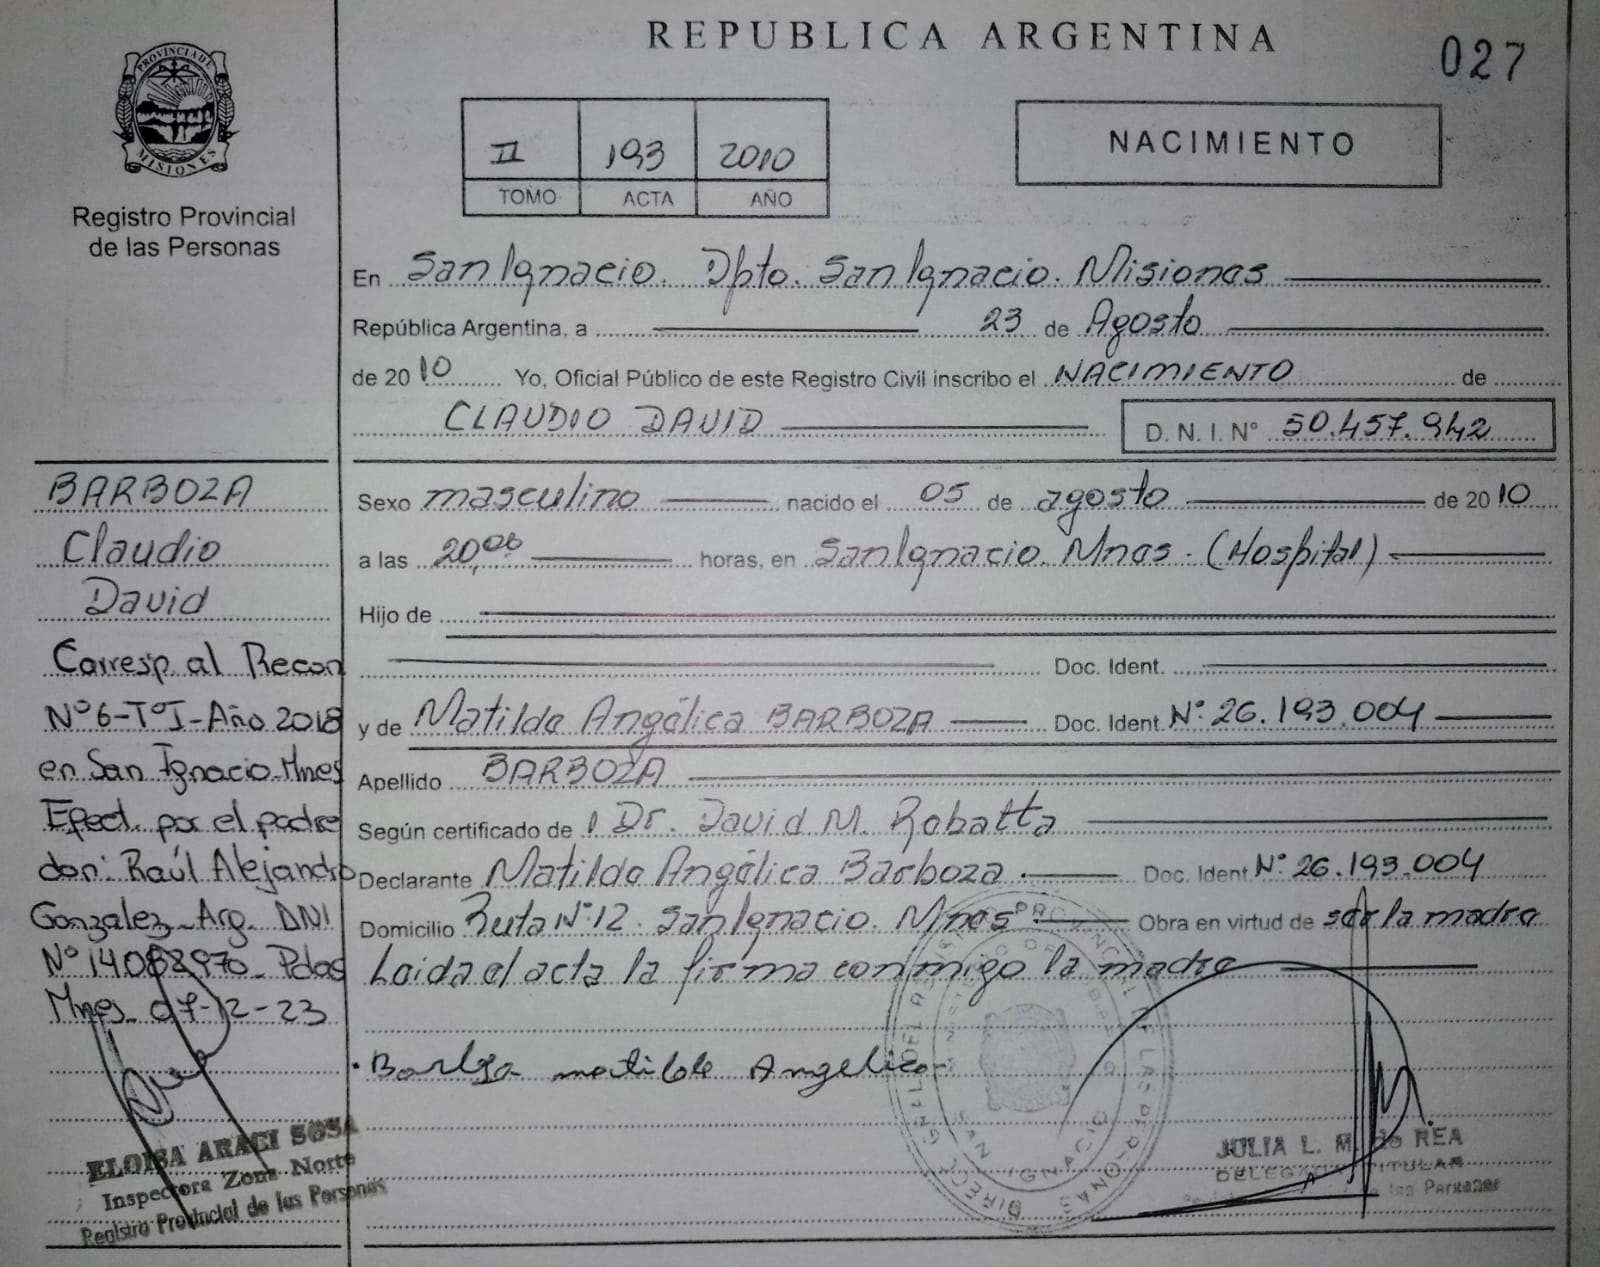 REPUBLICA ARGENTINA
027
PROVINCIA DE
MISIONES
Registro Provincial
de las Personas
II 193 2010
TOMO ACTA AÑO
NACIMIENTO
En San Ignacio. Dpto. San Ignacio. Misiones
República Argentina, a 23 de Agosto
de 2010 Yo, Oficial Público de este Registro Civil inscribo el NACIMIENTO de
CLAUDIO DAVID D. N. I. N° 50.457.942
Sexo masculino nacido el 05 de agosto de 2010
a las 20,00 horas, en San Ignacio. Mnes. (Hospital)
Hijo de
Doc. Ident.
y de Matilde Angélica BARBOZA Doc. Ident. N° 26.193.004
Apellido BARBOZA
Según certificado de Dr. David M. Robatta
Declarante Matilde Angélica Barboza Doc. Ident N° 26.193.004
Domicilio Ruta N° 12. San Ignacio. Mnes Obra en virtud de ser la madre
Leida el acta la firma conmigo la madre
BARBOZA
Claudio
David
Corresp. al Recon
N° 6-T° I-Año 2018
en San Ignacio-Mnes
Efect. por el padre
don: Raúl Alejandro
Gonzalez_Arg. DNI
N° 14082970_Pdas
Mnes_07-12-23
ELOISA ARACI SOSA
Inspectora Zona Norte
Registro Provincial de las Personas
Barboza Matilde Angelica
SAN IGNACIO
JULIA L. M. de REA
DELEGADA TITULAR
las Personas